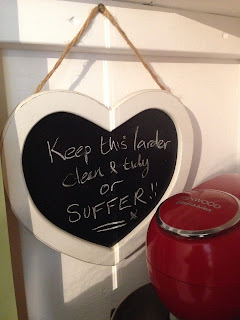 Keep this larder
clean & tidy
or
SUFFER!!
x
KENWOOD